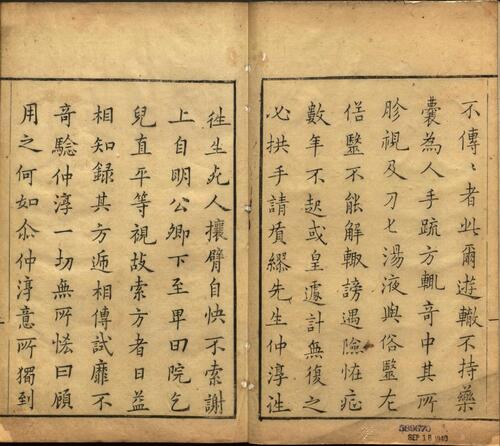 不傳〻者此爾遊轍不持藥
囊為人手疏方輒奇中其所
胗視及刀匕湯液與俗醫左
俗醫不能解輒謗遇險恠症
數年不起或皇遽計無復之
必拱手請質繆先生仲淳往
往生死人攘臂自快不索謝
上自明公卿下至卑田院乞
兒直平等視故索方者日益
相知錄其方遞相傳試靡不
奇驗仲淳一切無所恡曰顧
用之何如尒仲淳意所獨到
589670
SEP 18 1940